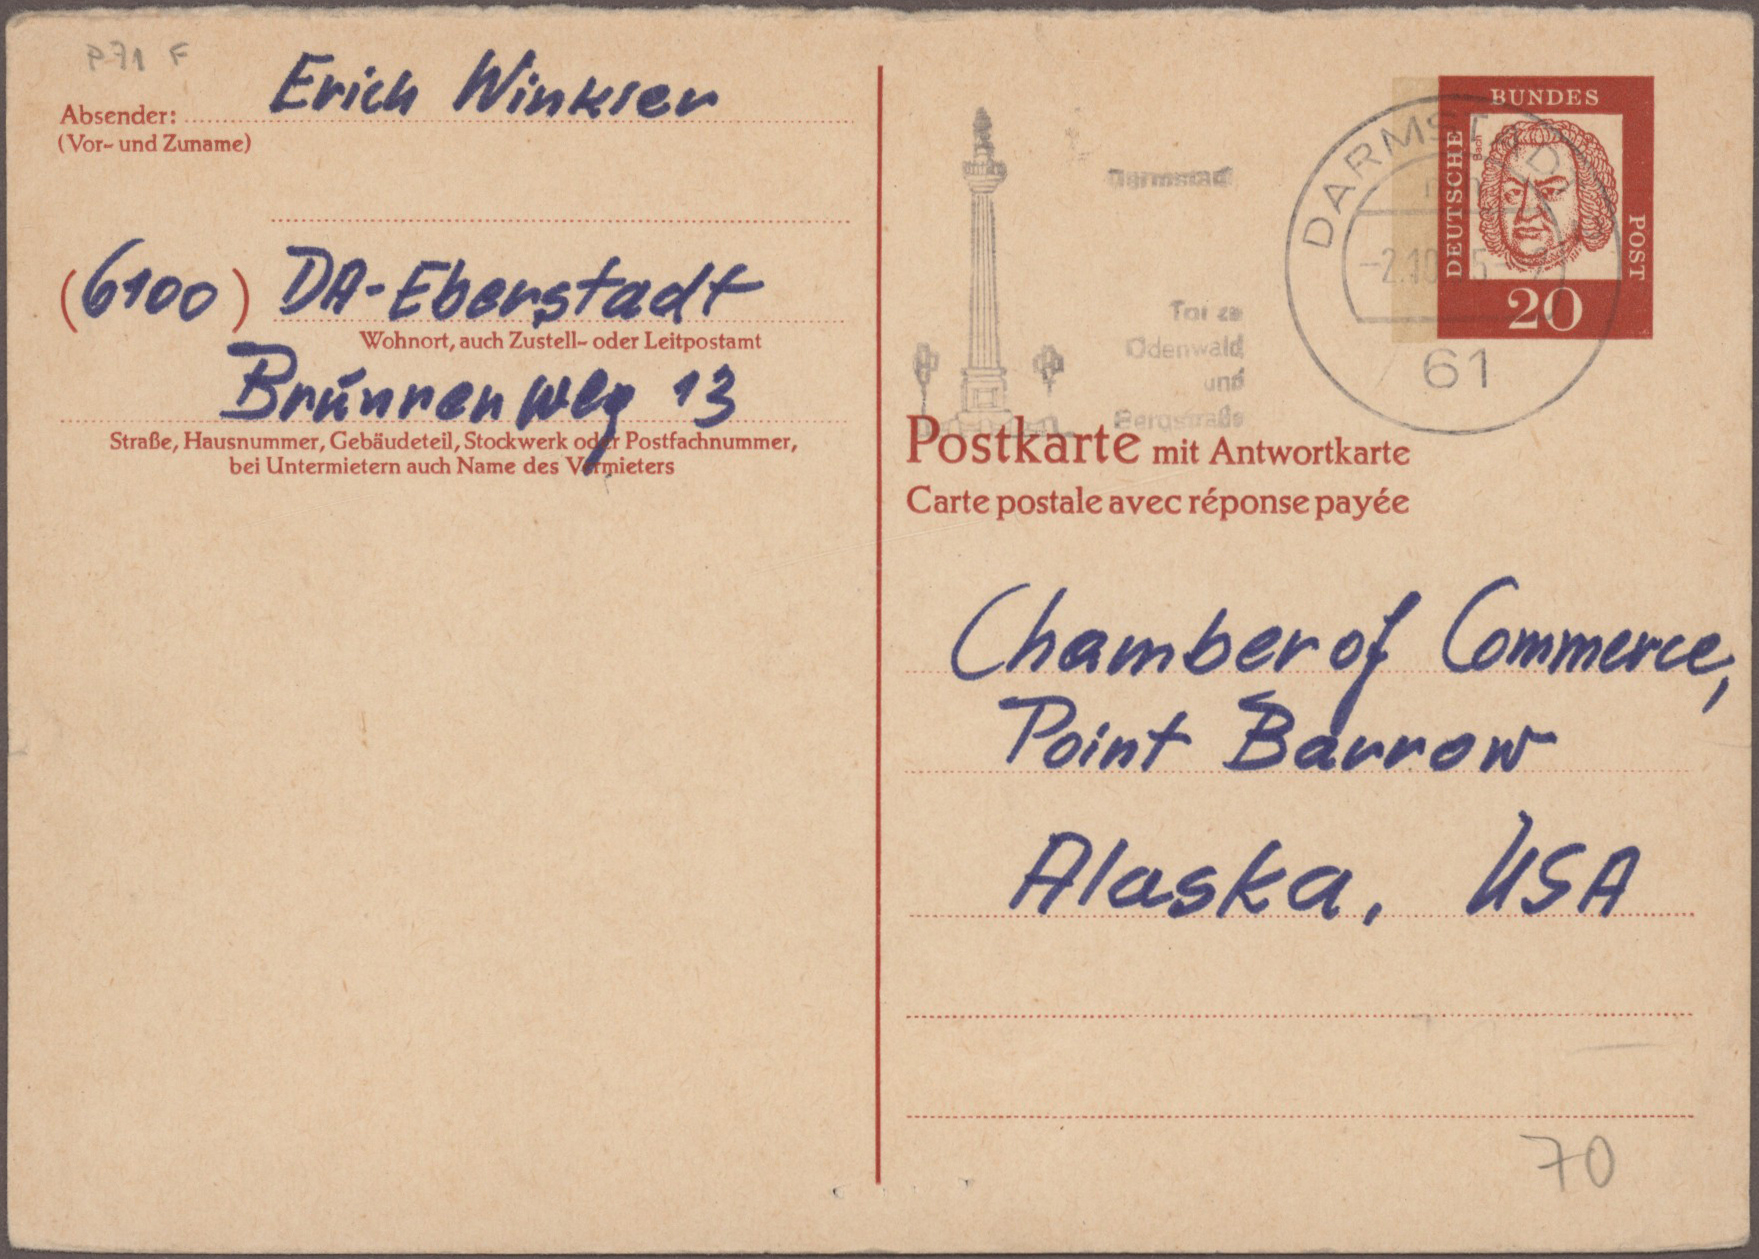 P71 F
Absender: Erich Winkler
(Vor- und Zuname)
(6100) DA-Eberstadt
Wohnort, auch Zustell- oder Leitpostamt
Brunnenweg 13
Straße, Hausnummer, Gebäudeteil, Stockwerk oder Postfachnummer,
bei Untermietern auch Name des Vermieters
Darmstadt
Tor zu
Odenwald
und
Bergstraße
DARMSTADT
-2.10.
61
BUNDES
DEUTSCHE
POST
Bach
20
Postkarte mit Antwortkarte
Carte postale avec réponse payée
Chamber of Commerce,
Point Barrow
Alaska, USA
70